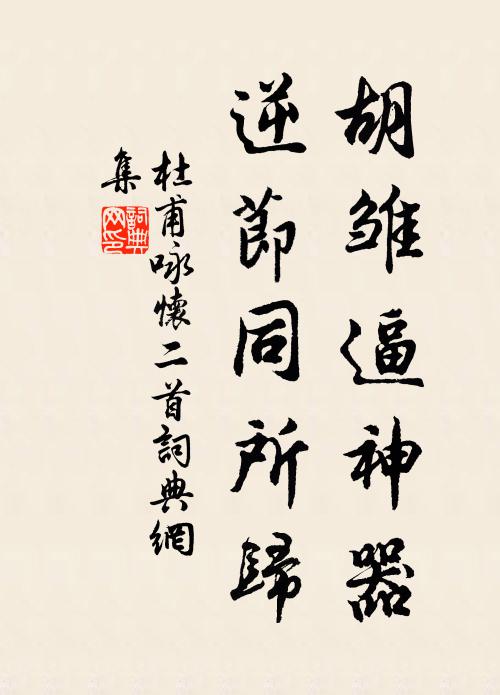 胡雏逼神器
逆節同所歸
杜甫咏懷二首詞典網
集
詞典
网印